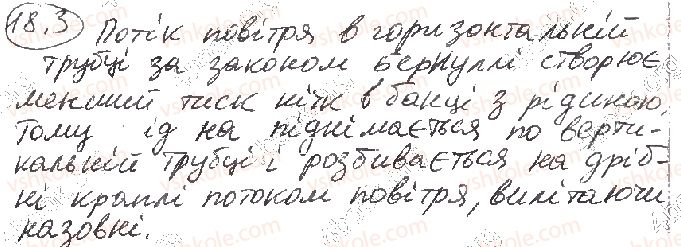 18.3 Потік повітря в горизонтальній
трубці за законом бернуллі створює
менший тиск ніж в банці з рідиною,
тому ід на піднімається по верти-
кальній трубці і розбивається на дріб-
ні краплі потоком повітря, вилітаючи
назовні.